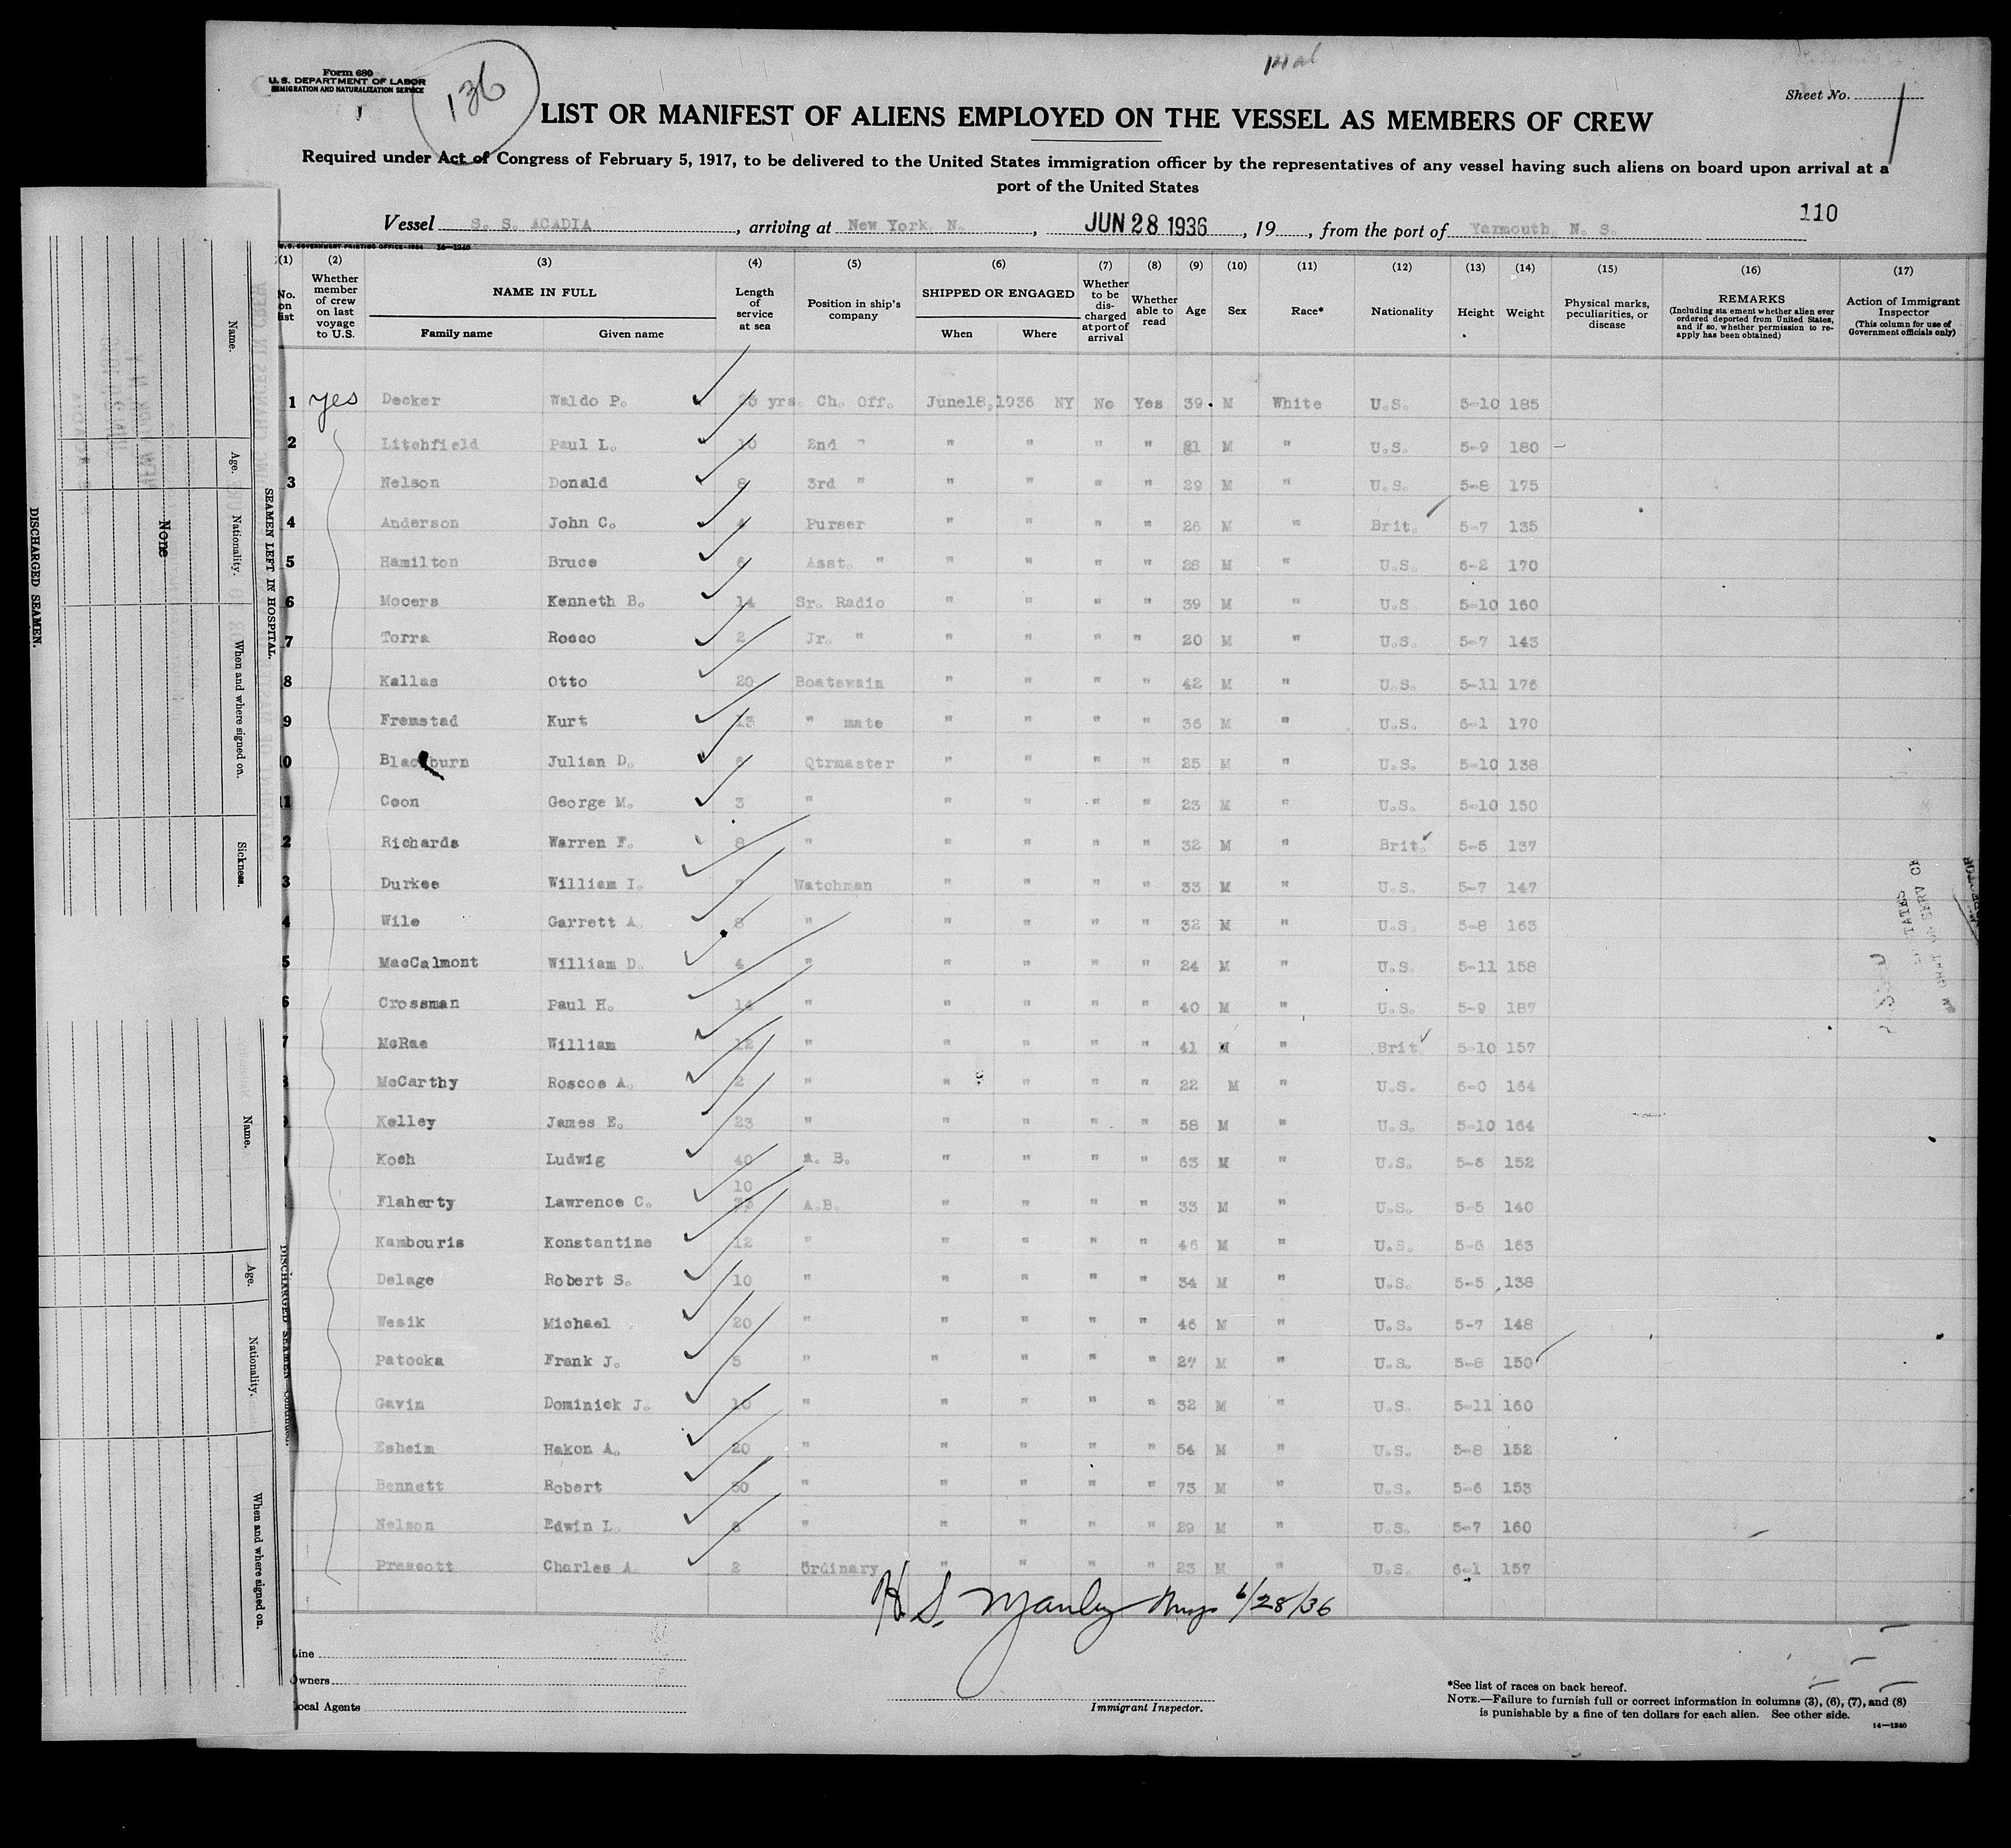 Form 680
U. S. DEPARTMENT OF LABOR
IMMIGRATION AND NATURALIZATION SERVICE
136
Sheet No. 1
LIST OR MANIFEST OF ALIENS EMPLOYED ON THE VESSEL AS MEMBERS OF CREW
Required under Act of Congress of February 5, 1917, to be delivered to the United States immigration officer by the representatives of any vessel having such aliens on board upon arrival at a
port of the United States
110
Vessel S. S. ACADIA, arriving at New York N., JUN 28 1936, 19, from the port of Yarmouth N. S.
U. S. GOVERNMENT PRINTING OFFICE
(1) (2) (3) (4) (5) (6) (7) (8) (9) (10) (11) (12) (13) (14) (15) (16) (17)
No. on list
Whether member of crew on last voyage to U.S.
NAME IN FULL
Family name
Given name
Length of service at sea
Position in ship's company
SHIPPED OR ENGAGED
When
Where
Whether to be discharged at port of arrival
Whether able to read
Age
Sex
Race*
Nationality
Height
Weight
Physical marks, peculiarities, or disease
REMARKS
(Including statement whether alien ever ordered deported from United States, and if so, whether permission to re-apply has been obtained)
Action of Immigrant Inspector
(This column for use of Government officials only)
1 yes Decker Waldo P. yrs. Ch. Off. June18,1936 NY No Yes 39 M White U.S. 5-10 185
2 Litchfield Paul L. 10 2nd " " " " " M " U.S. 5-9 180
3 Nelson Donald 8 3rd " " " " " 29 M " U.S. 5-8 175
4 Anderson John C. Purser " " " " 26 M " Brit. 5-7 135
5 Hamilton Bruce 6 Asst. " " " " " 28 M " U.S. 6-2 170
6 Mooers Kenneth B. 14 Sr. Radio " " " " 39 M " U.S 5-10 160
7 Torra Rocco 2 Jr. " " " " " 20 M " U.S. 5-7 143
8 Kallas Otto 20 Boatswain " " " " 42 M " U.S. 5-11 176
9 Fremstad Kurt 13 " mate " " " " 36 M " U.S. 6-1 170
10 Blackburn Julian D. 6 Qtrmaster " " " " 25 M " U.S. 5-10 138
11 Coon George M. 3 " " " " " 23 M " U.S. 5-10 150
2 Richards Warren F. 8 " " " " " 32 M " Brit. 5-5 137
3 Durkee William I. Watchman " " " " 33 M " U.S. 5-7 147
4 Wile Garrett A. 8 " " " " " 32 M " U.S 5-8 163
5 MacCalmont William D. 4 " " " " " 24 M " U.S. 5-11 158
6 Crossman Paul H. 14 " " " " " 40 M " U.S. 5-9 187
7 McRae William 12 " " " " " 41 M " Brit 5-10 157
8 McCarthy Roscoe A. 2 " " " " " 22 M " U.S. 6-0 164
9 Kelley James E. 23 " " " " " 58 M " U.S. 5-10 164
Koch Ludwig 40 A. B. " " " " 63 M " U.S. 5-6 152
Flaherty Lawrence C. 10 A.B. " " " " 33 M " U.S. 5-5 140
Kambouris Konstantine 12 " " " " " 46 M " U.S. 5-6 163
Delage Robert S. 10 " " " " " 34 M " U.S. 5-5 138
Wesik Michael 20 " " " " " 46 M " U.S. 5-7 148
Patocka Frank J. 5 " " " " " 27 M " U.S. 5-8 150
Gavin Dominick J. 10 " " " " " 32 M " U.S. 5-11 160
Esheim Hakon A. 20 " " " " " 54 M " U.S. 5-8 152
Bennett Robert 50 " " " " " 73 M " U.S. 5-6 153
Nelson Edwin L. 8 " " " " " 29 M " U.S. 5-7 160
Prescott Charles A. 2 Ordinary " " " " 23 M " U.S. 6-1 157
H. S. Manley 6/28/36
Line
Owners
Local Agents
Immigrant Inspector.
*See list of races on back hereof.
NOTE.—Failure to furnish full or correct information in columns (3), (6), (7), and (8)
is punishable by a fine of ten dollars for each alien. See other side.
14—1240
SEAMEN LEFT IN HOSPITAL.
Name.
Age.
Nationality.
When and where signed on.
Sickness.
None
DISCHARGED SEAMEN.
DISCHARGED SEAMEN—Continued.
Name.
Age.
Nationality.
When and where signed on.